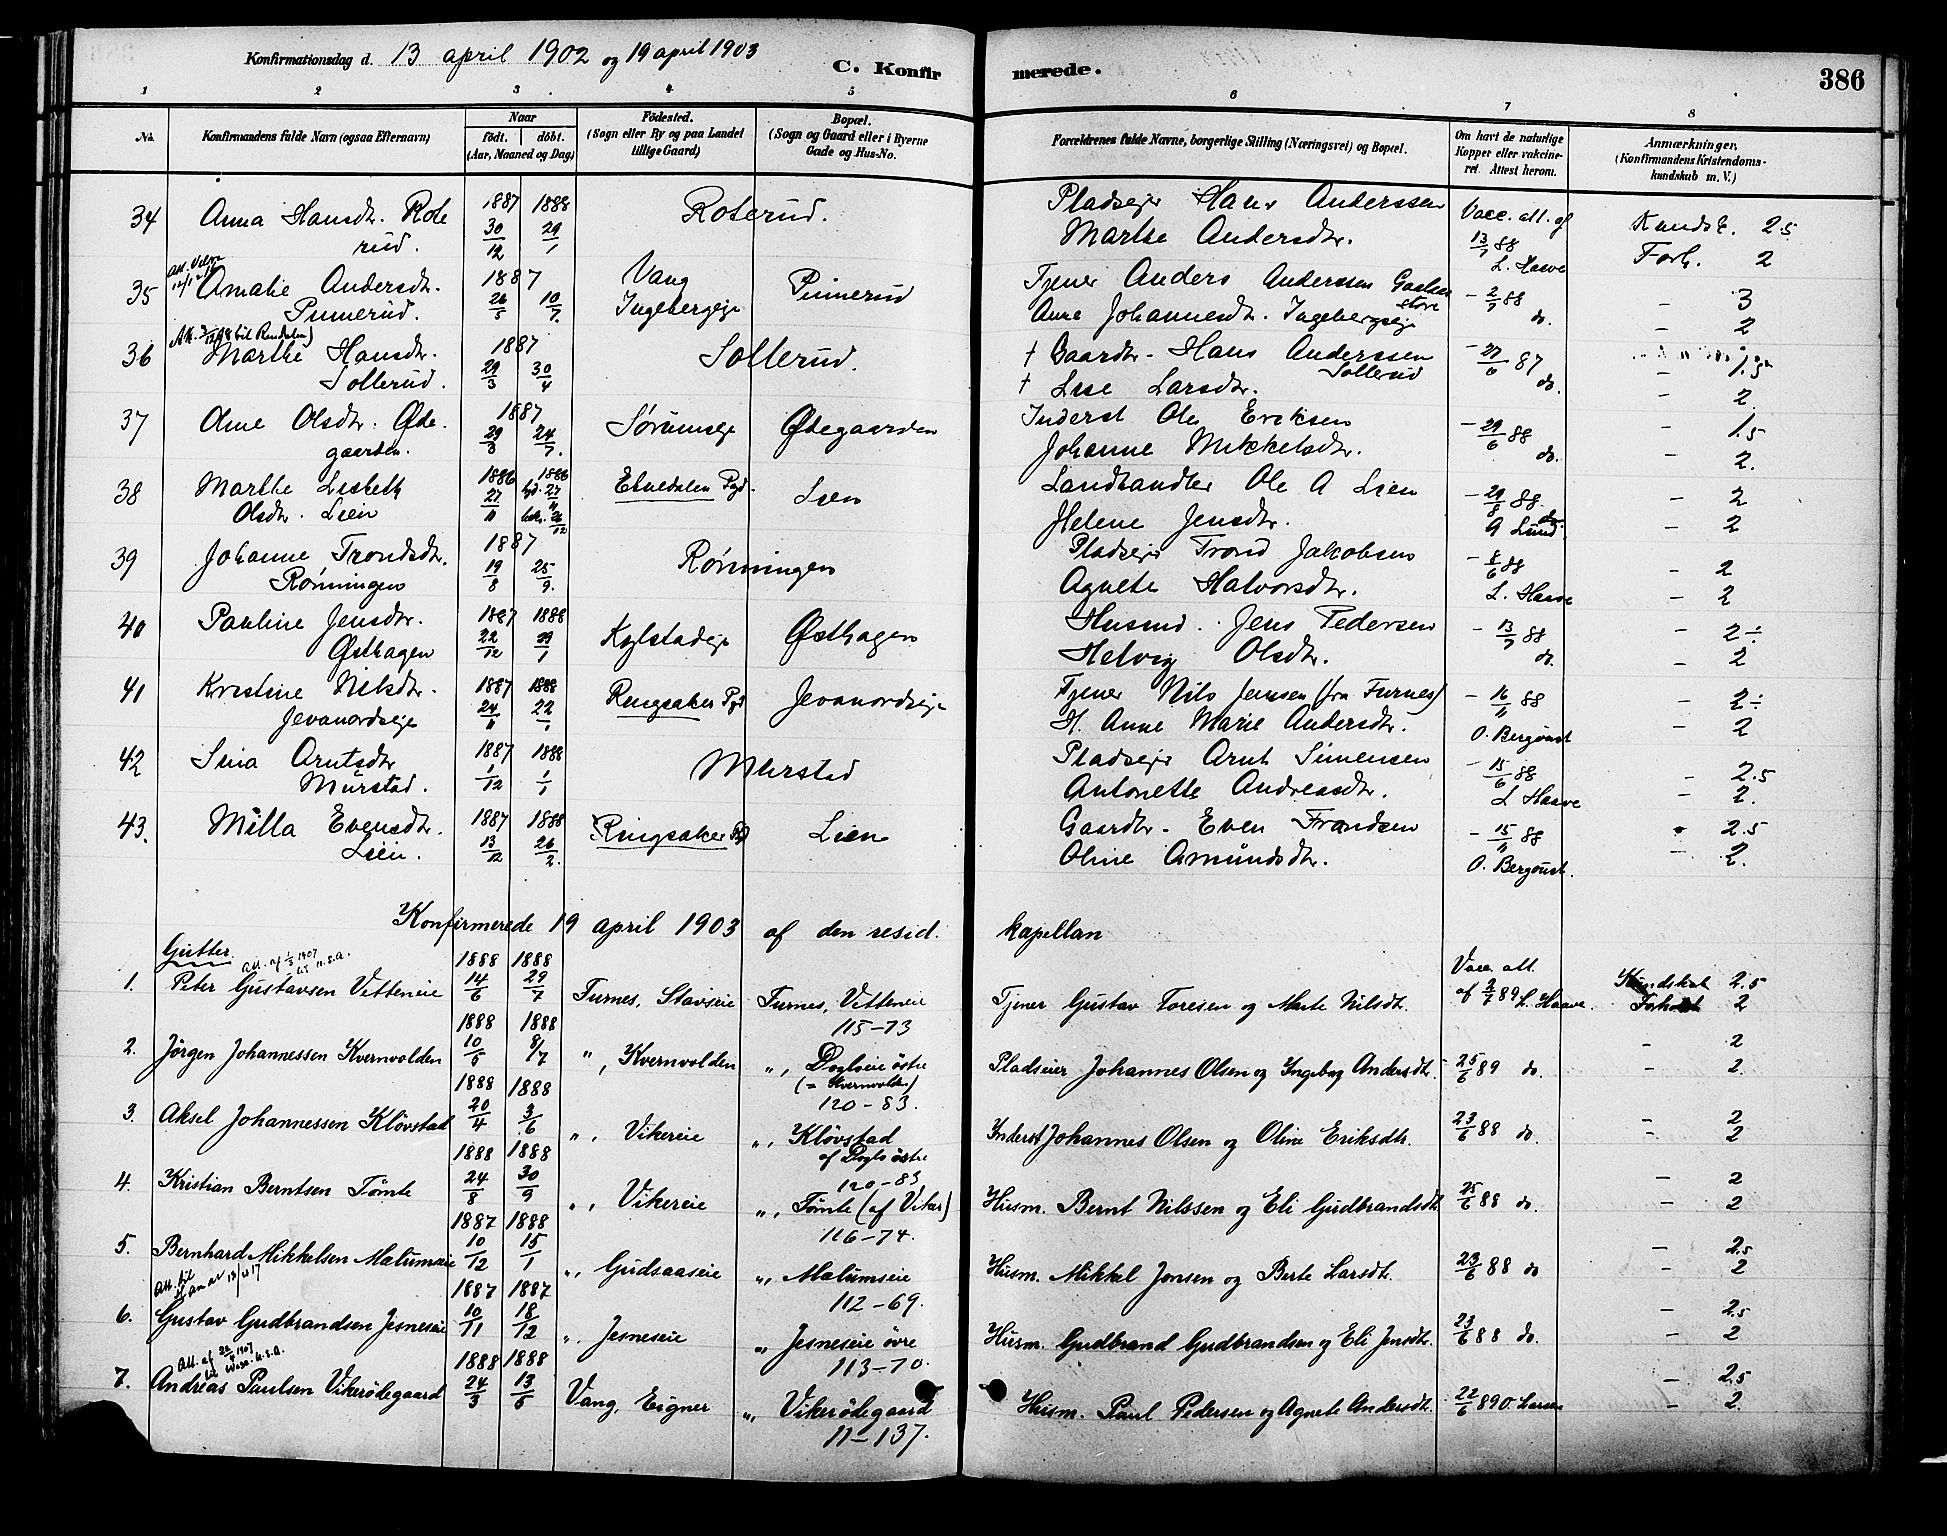 Konfirmationsdag d. 13 april 1902 og 19 april 1903
C. Konfir merede.
386
1 2 3 4 5 6 7 8
No. Konfirmandens fulde Navn (ogsaa Efternavn) Naar født. døbt. (Aar, Maaned og Dag) Fødested. (Sogn eller By og paa Landet tillige Gaard) Bopæl. (Sogn og Gaard eller i Byerne Gade og Hus-No. Forældrenes fulde Navne, borgerlige Stilling (Næringsvei) og Bopæl. Om havt de naturlige Kopper eller vakcineret. Attest herom. Anmærkninger. (Konfirmandens Kristendomskundskab m. V.)
34 Anna Hansdtr. Rote 1887 1888 Roterud. Pladsejer Hans Anderssen Vacc. att. af Kundsk. 2.5
rud. 30/12 29/1 Marthe Andersdtr. 13/7 88 L. Hasve Forh. 2
35 Amalie Andersdtr. 1887 Vang Pinnerud Tjener Anders Anderssen - 2/7 88 - 3
Pinnerud. 26/5 10/7. Ingebergeje Anne Johannesdtr. Ingebergseje do. - 2
36 Marthe Hansdtr. 1887 Sollerud. † Gaardbr. Hans Anderssen - 27/6 87 - 1.5
Sollerud. 29/3 30/4 † Lise Larsdtr. Sollerud do. - 2
37 Ane Olsdtr. Øde- 1887 Sørumseje Ødegaarden Inderst Ole Eriksen - 29/6 88 - 1.5
gaarden. 29/3 24/7. Johanne Mikkelsdtr. do. - 2.
38 Marthe Lisbeth 1886 1886 Elvedalen Pgd. Lien Landhandler Ole A Lien - 29/8 88. - 2
Olsdtr. Lien 27/11 27/11 26/12 Helene Jensdtr. A Lund - 2
39 Johanne Trondsdtr. 1887 Rønningen Pladsejer Trond Jakobsen - 8/6 88 - 2
Rønningen 19/8 25/9. Agnete Halvorsdtr. L. Hasve - 2
40 Pauline Jensdtr. 1887 1888 Kylstadeje Østhagen Husmd. Jens Pedersen - 13/7 88 - 2÷
Østhagen 22/12 29/1 Helvig Olsdtr. do. - 2
41 Kristine Nilsdtr. 1887 1888 Ringsaker Pgd Jevanordseje Tjener Nils Jensen (fra Furnes) - 16/11 88 - 2÷
Jevanordseje 24/11 22/1 H. Anne Marie Andersdtr. O. Bergqvist - 2
42 Lina Arntsdtr 1887 1888 Murstad Pladsejer Arnt Simensen - 15/6 88 - 2.5
Murstad. 1/12 1/1 Antonette Andreasdtr. L Hasve - 2.
43. Milla Evensdtr. 1887 1888 Ringsaker Pgd Lien Gaardbr. Even Frandsen - 15/11 88 - 2.5
Lien. 13/12 26/2. Oline Amundsdtr. O. Bergqvist. - 2.
Konfirmerede 19 april 1903 af den resid. kapellan
Gutter. Att. af 1/3 1907 til U.S.A. 1888 1888 Vacc. att.
1. Peter Gustavsen Vetteneie 14/6 29/7 Furnes, Stavseie Furnes, Vetteneie Tjener Gustav Toresen og Marte Nilsdt. af 2/7 89 L. Haave. Kundskab 2.5
115-73 Forhold 2
1888 1888
2. Jörgen Johannessen Kvernvolden 10/5 8/7 ", Kvernvolden ", Doglseie östre Pladseier Johannes Olsen og Ingeborg Andersdt. 25/6 89 do. - 2
(= Kvernvolden) - 2.
120-83.
1888 1888
3. Aksel Johannessen Klövstad 20/4 3/6 ", Vikereie ", Klövstad Inderst Johannes Olsen og Oline Eriksdt. 23/6 88 do. - 2
af Dogls östre - 2
120-83
1888 1888
4. Kristian Berntsen Tömte 24/8 30/9 ", Vikereie ", Tömte (af Viker) Husm. Bernt Nilssen og Eli Gudbrandsdt. 25/6 88 do. - 2
116-74. - 2
1887 1888
5. Bernhard Mikkelsen Malumseie 10/12 15/1 ", Gudsaaseie ", Malumseie Husm. Mikkel Jonsen og Berte Larsdt. 23/6 88 do - 2.5
Att. til Hamar 112-69. - 2
1887 1887
6. Gustav Gudbrandsen Jesneseie 10/11 18/12 ", Jesneseie ", Jesneseie övre Husm. Gudbrand Gudbrandsen og Eli Jensdt. 23/6 88 do. - 2.5
113-70. - 2
Att. af 22/4 1907 1888 1888
7. Andreas Paulsen Vikerödegaard 24/3 13/5 Vang, Eigner ", Vikerödegaard Husm. Paul Pedersen og Agnete Andersdt. 22/6 89 O. Larsen - 2.5
11-137. - 2.